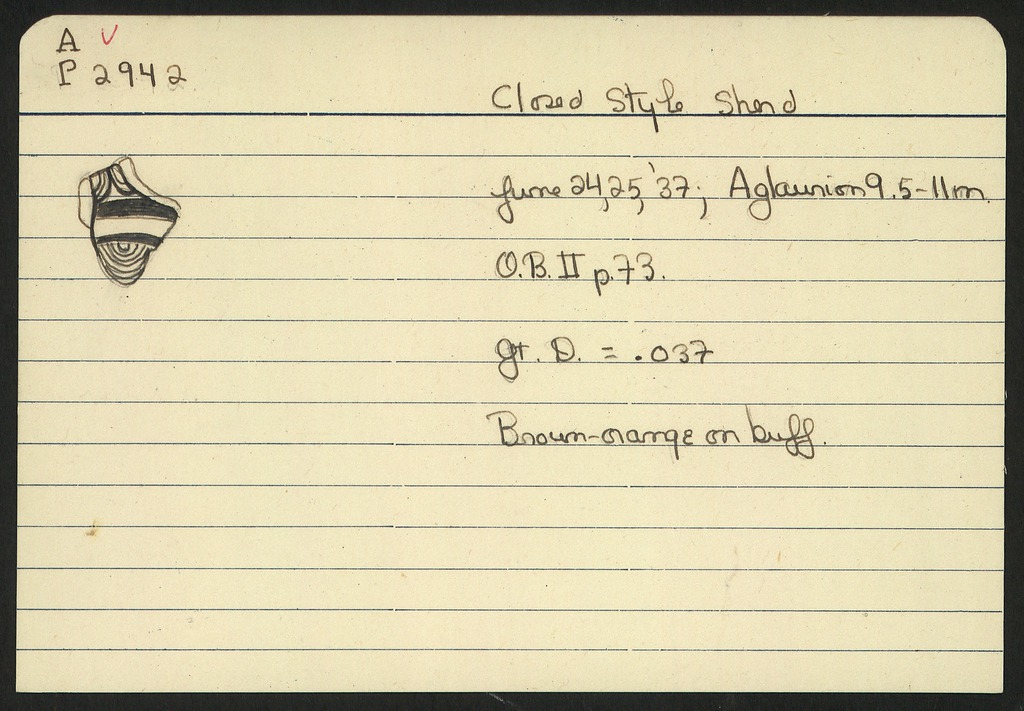 A V
P 2942
Closed Style Sherd
June 24,25,'37; Aglaurion 9.5-11m.
O.B. II p.73.
gt. D. = .037
Brown-orange on buff.